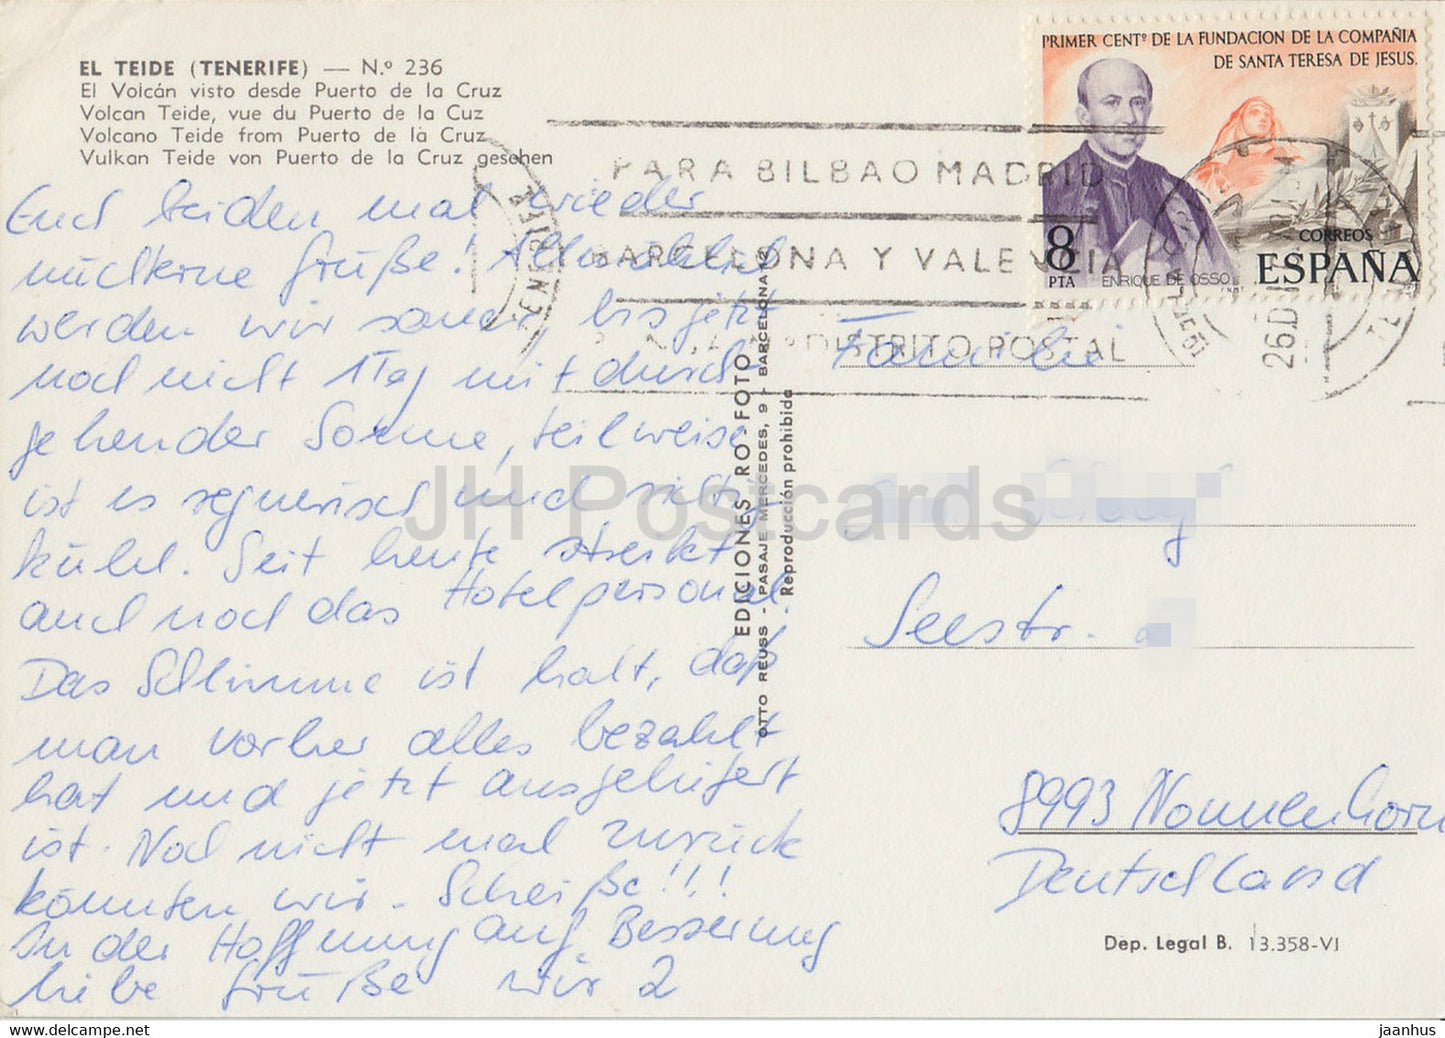 EL TEIDE (TENERIFE) — N.º 236
El Volcán visto desde Puerto de la Cruz
Volcan Teide, vue du Puerto de la Cuz
Volcano Teide from Puerto de la Cruz
Vulkan Teide von Puerto de la Cruz gesehen
Euch beiden mal wieder
nüchterne Grüße! Allmählich
werden wir sauer, bis jetzt
noch nicht 1 Tag mit durch-
gehender Sonne, teilweise
ist es regnerisch und
kühl. Seit heute streikt
auch noch das Hotelpersonal.
Das Schlimme ist halt, daß
man vorher alles bezahlt
hat und jetzt ausgeliefert
ist. Noch nicht mal zurück
könnten wir. Scheiße!!!
In der Hoffnung auf Besserung
liebe Grüße wir 2
EDICIONES RO-FOTO
OTTO REUSS - PASAJE MERCEDES, 9 - BARCELONA-12
Reproducción prohibida
PRIMER CENTº DE LA FUNDACION DE LA COMPAÑIA
DE SANTA TERESA DE JESUS.
8
PTA
ENRIQUE DE OSSO
CORREOS
ESPAÑA
PARA BILBAO MADRID
BARCELONA Y VALENCIA
DISTRITO POSTAL
TENERIFE
26.D
Familie
Seestr.
8993 Nonnenhorn
Deutschland
Dep. Legal B. 13.358-VI
JH Postcards
jaanhus — https://www.delcampe.net